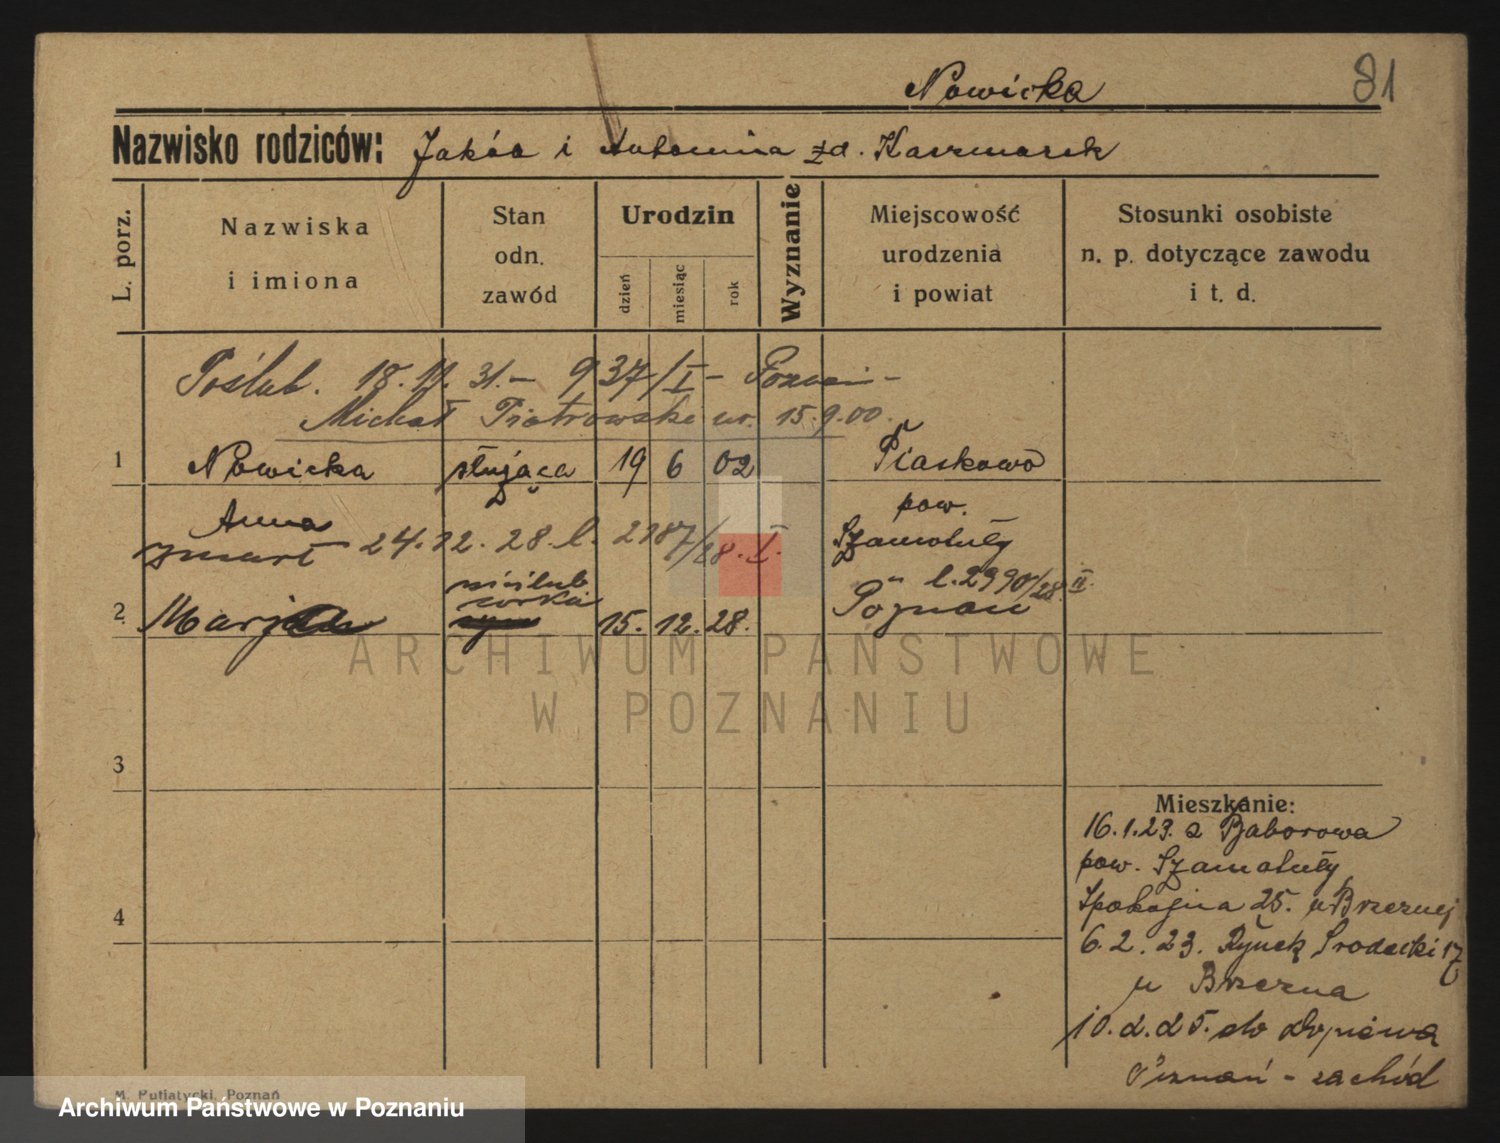 Nowicka 81
Nazwisko rodziców: Jakób i Antonina zd. Kaczmarek
L. porz.
Nazwiska
i imiona
Stan
odn.
zawód
Urodzin
dzień
miesiąc
rok
Wyznanie
Miejscowość
urodzenia
i powiat
Stosunki osobiste
n. p. dotyczące zawodu
i t. d.
Poślub. 18.11.31.– 937/I – Poznań –
Michał Piotrowski ur. 15.9.00.
1 Nowicka służąca 19 6 02 Piaskowo
Anna pow.
Szamotuły
zmarł 24.12.28. l. 2187/28. I.
" l. 2990/28 II.
nieślub
córka
2 Marja 15. 12. 28. Poznań
ARCHIWUM PAŃSTWOWE
W POZNANIU
3
4
Mieszkanie:
16.1.23. z Baborowa
pow. Szamotuły
Spokojna 25. u Brzeznej
6.2.23. Rynek Środecki 17
u Brzezna
10.2.25. do Dopiewa
Poznań - zachód
M. Putiatycki, Poznań
Archiwum Państwowe w Poznaniu